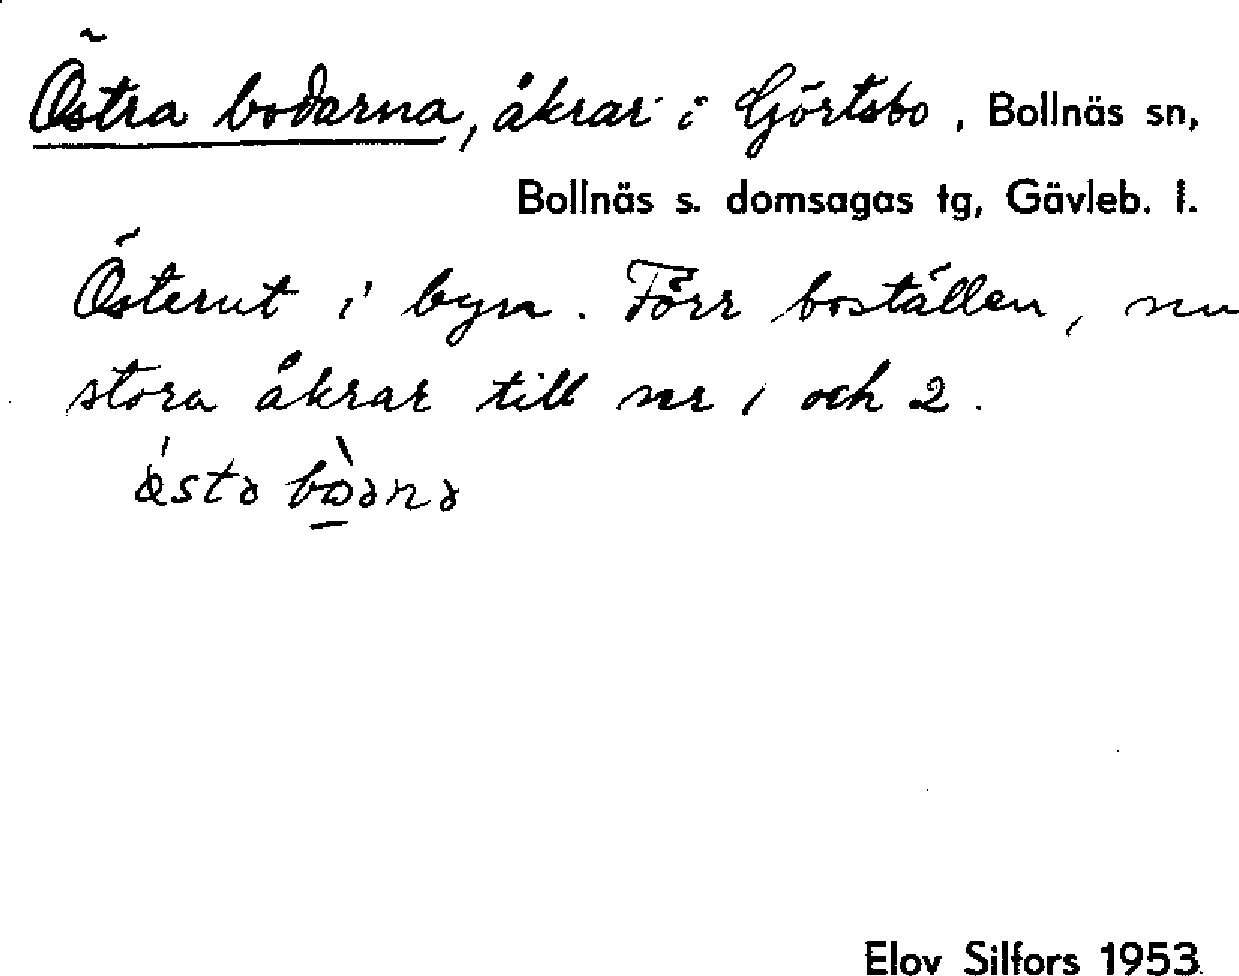 Östra bodarna, åkrar i Görtsbo, Bollnäs sn,
Bollnäs s. domsagas tg, Gävleb. l.
Österut i byn. Förr boställen, nu
stora åkrar till nr 1 och 2.
Elov Silfors 1953